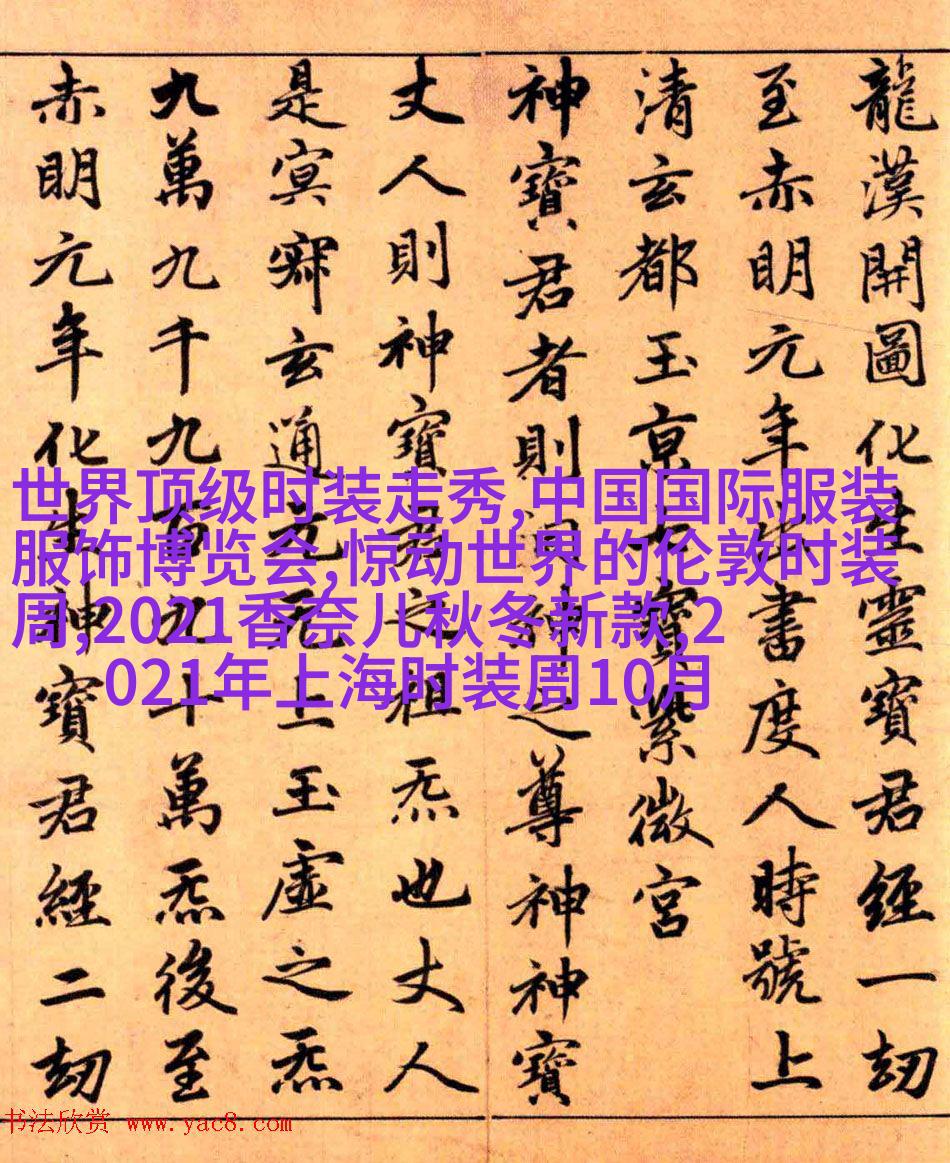 龍漢開圖化生靈寶君經一劫
至赤明元年出書度人時號上
清玄都玉京七寶紫微宮
神寶君者則洞神之尊神神寶
丈人則神寶君之祖炁也丈人
是冥寂玄通元无上玉虛之炁
九萬九千九百九十萬炁後至
赤明元年化生神寶君經二劫
世界顶级时装走秀,中国国际服装
服饰博览会,惊动世界的伦敦时装
周,2021香奈儿秋冬新款,2
021年上海时装周10月
书法欣赏 www.yac8.com